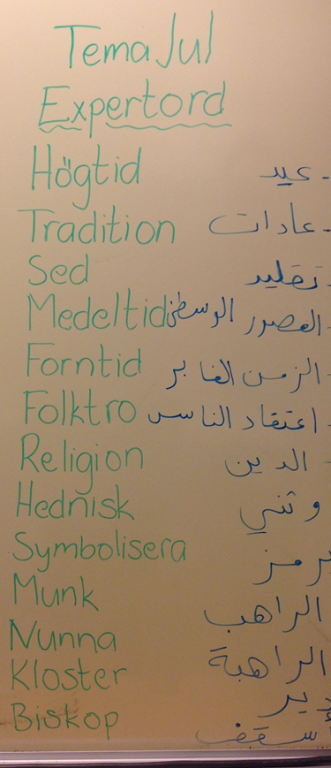 Tema Jul
Expertord
Högtid - عيد
Tradition - عادات
Sed - تقليد
Medeltid - العصور الوسطى
Forntid - الزمن الغابر
Folktro - اعتقاد الناس
Religion - الدين
Hednisk وثني
Symbolisera يرمز
Munk الراهب
Nunna الراهبة
Kloster دير
Biskop أسقف